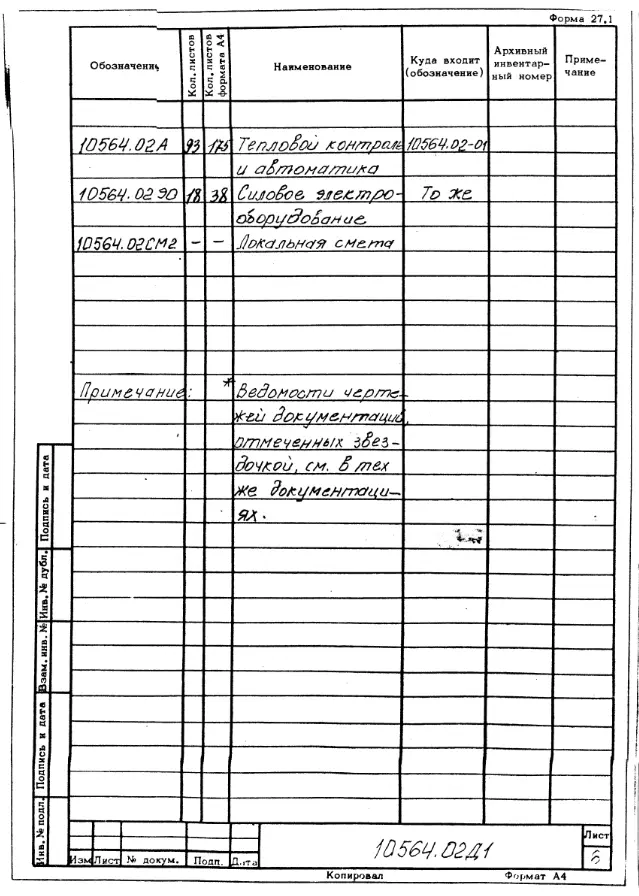 Форма 27.1
Обозначение Кол. листов Кол. листов формата А4 Наименование Куда входит (обозначение) Архивный инвентарный номер Примечание
10564.02А 93 175 Тепловой контроль 10564.02-01
и автоматика
10564.02ЭО 18 38 Силовое электро- То же
оборудование
10564.02СМ2 — — Локальная смета
Примечание: * Ведомости черте-
жей документаций,
отмеченных звез-
дочкой, см. в тех
же документаци-
ях.
Инв.№ подл. Подпись и дата Взам. инв. № Инв.№ дубл. Подпись и дата
10564.02Д1
Лист
6
Изм Лист № докум. Подп. Дата
Копировал Формат А4